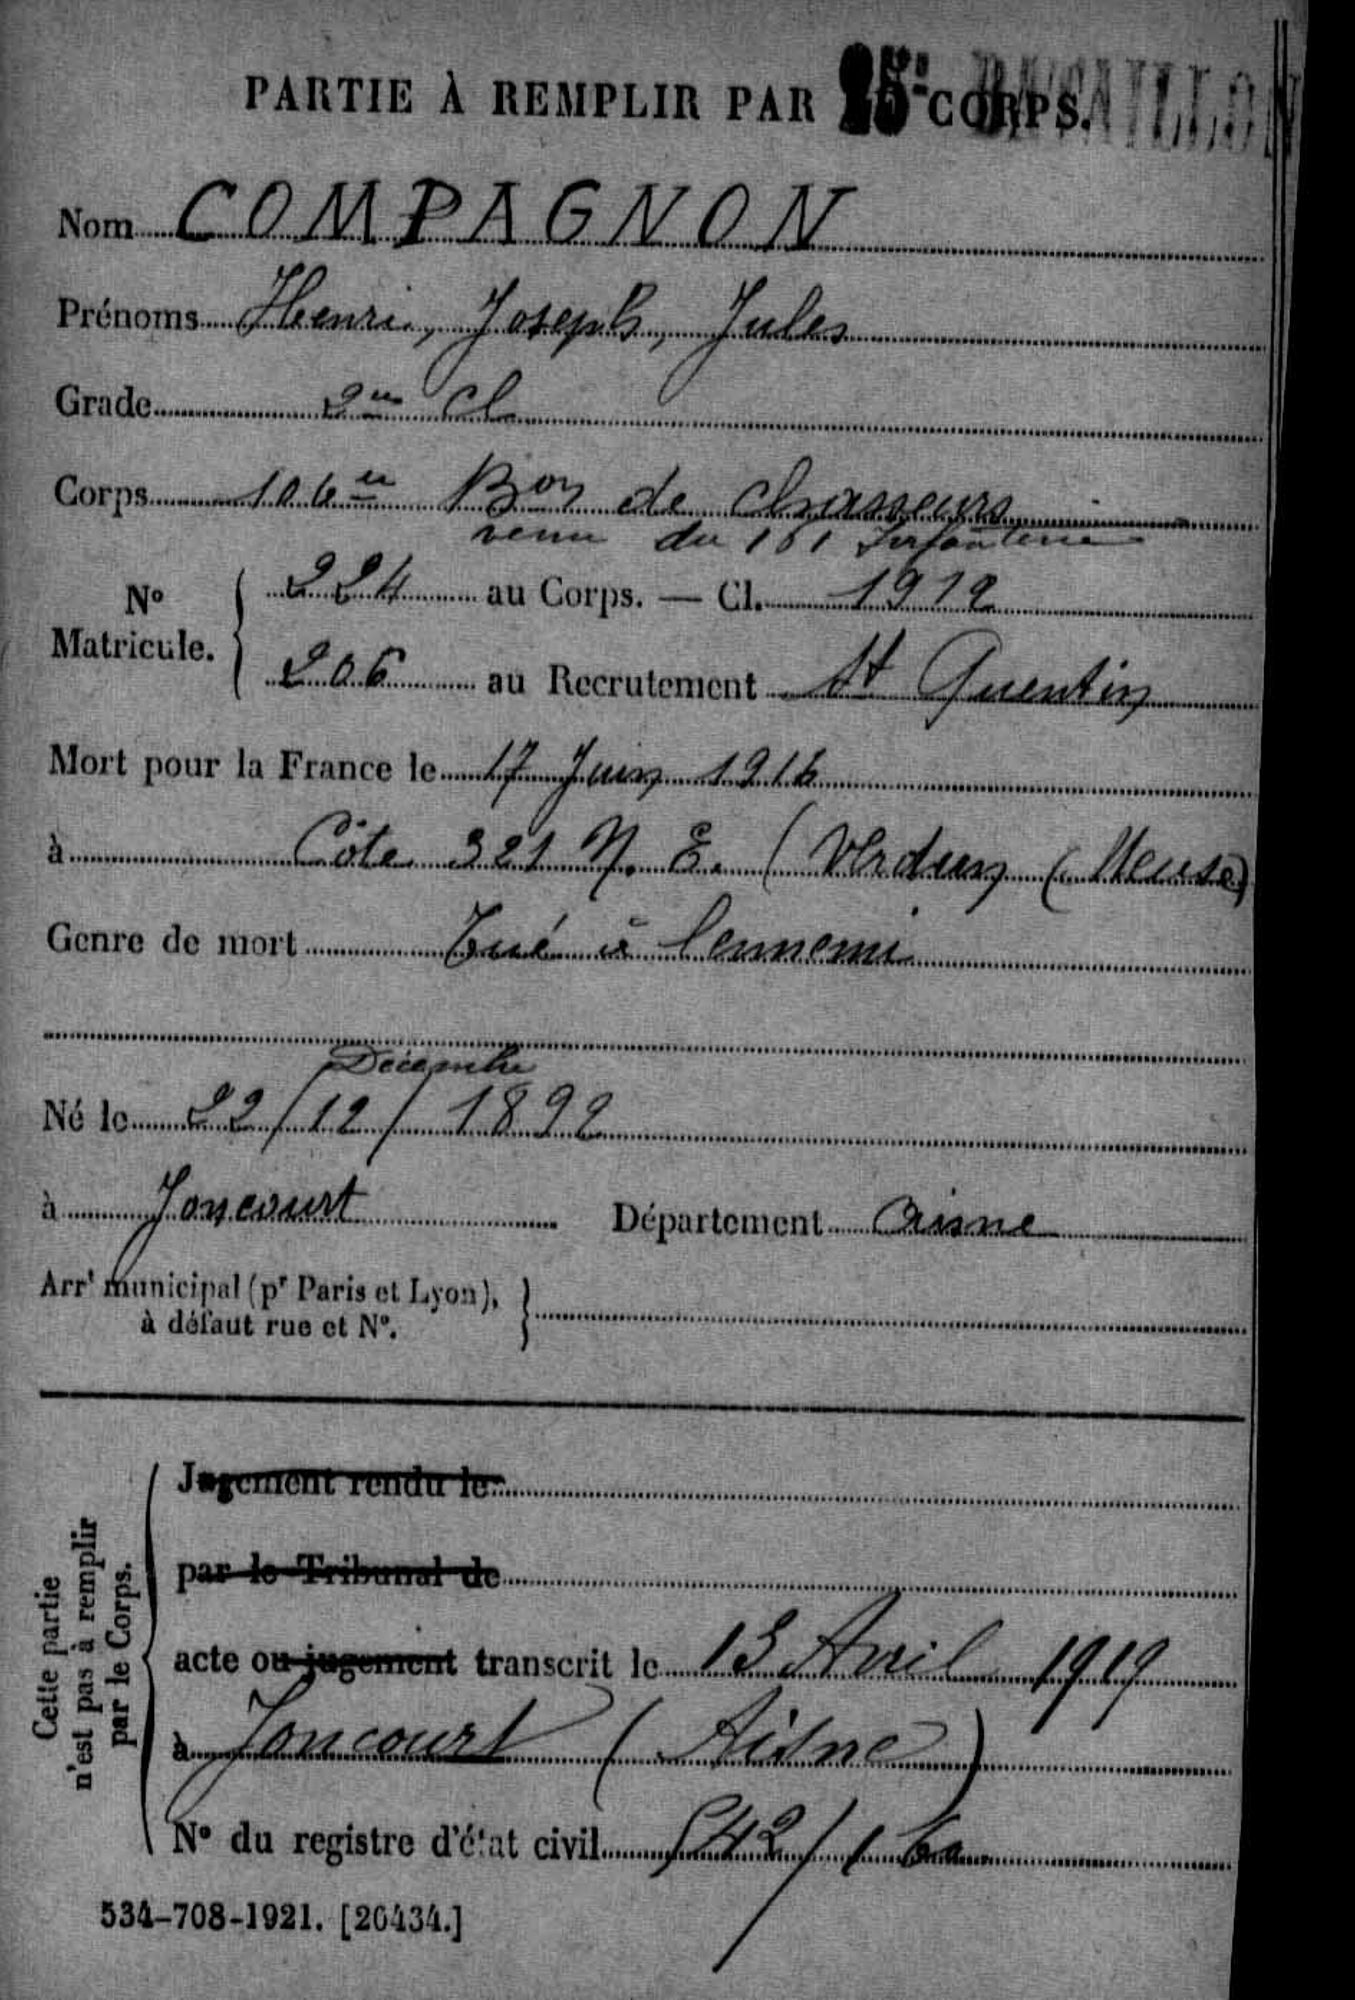 PARTIE À REMPLIR PAR CORPS.
25e BATAILLON
Nom COMPAGNON
Prénoms Henri, Joseph, Jules
Grade 2e Cl
Corps 106e Bon de chasseurs
venu du 161 Infanterie
No Matricule. 224 au Corps. — Cl. 1912
206 au Recrutement St Quentin
Mort pour la France le 17 Juin 1916
à Côte 321 N. E. (Verdun (Meuse)
Genre de mort Tué à lennemi
Décembre
Né le 22/12/1892
à Joncourt Département Aisne
Arrt municipal (pr Paris et Lyon),
à défaut rue et No.
Cette partie
n'est pas à remplir
par le Corps.
Jugement rendu le
par le Tribunal de
acte ou jugement transcrit le 13 Avril 1919
à Joncourt (Aisne)
No du registre d'état civil
534-708-1921. [26434.]